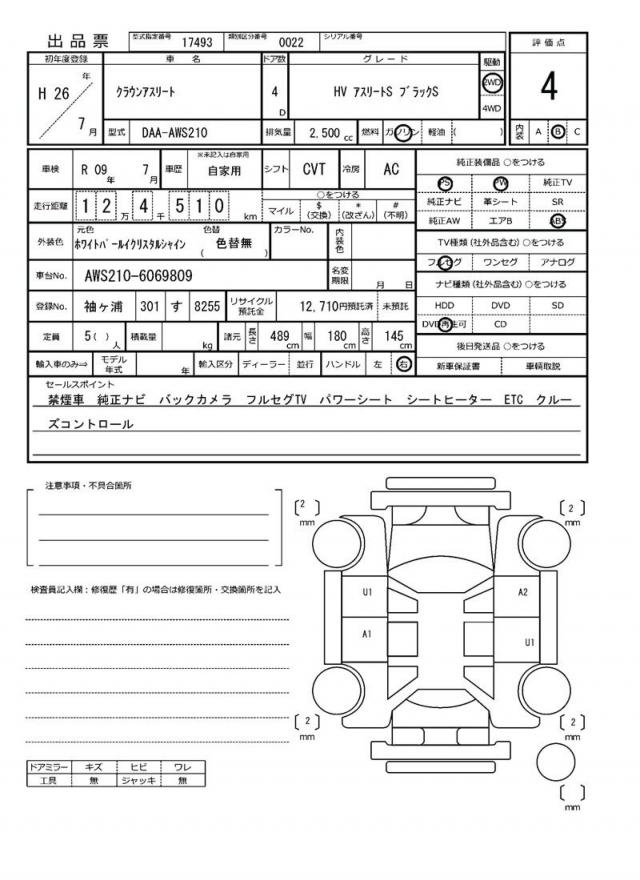 出品票 型式指定番号 17493 類別区分番号 0022 シリアル番号
評価点
4
内装 A B C
初年度登録 車名 ドア数 グレード 駆動
H 26 年 7 月 クラウンアスリート 4 D HV アスリートS ブラックS 2WD 4WD
型式 DAA-AWS210 排気量 2,500 cc 燃料 ガソリン 軽油 ( )
車検 R 09 年 7 月 車歴 ※未記入は自家用 自家用 シフト CVT 冷房 AC
走行距離 1 2 万 4 千 5 1 0 km ○をつける マイル $ (交換) * (改ざん) # (不明)
外装色 元色 ホワイトパールイクリスタルシャイン 色替 ( 色替無 ) カラーNo. 内装色
車台No. AWS210-6069809 名変期限 月 日
登録No. 袖ヶ浦 301 す 8255 リサイクル預託金 12,710円預託済 未預託
定員 5( ) 人 積載量 kg 諸元 長さ 489 cm 幅 180 cm 高さ 145 cm
輸入車のみ⇒ モデル年式 年 輸入区分 ディーラー 並行 ハンドル 左 右
純正装備品 ○をつける
PS PW 純正TV
純正ナビ 革シート SR
純正AW エアB ABS
TV種類 (社外品含む) ○をつける
フルセグ ワンセグ アナログ
ナビ種類 (社外品含む) ○をつける
HDD DVD SD
DVD再生可 CD
後日発送品 ○をつける
新車保証書 車輌取説
セールスポイント
禁煙車 純正ナビ バックカメラ フルセグTV パワーシート シートヒーター ETC クルー
ズコントロール
注意事項・不具合箇所
検査員記入欄：修復歴「有」の場合は修復箇所・交換箇所を記入
ドアミラー キズ ヒビ ワレ
工具 無 ジャッキ 無
2 mm
2 mm
U1 A2
A1 U1
2 mm
2 mm
mm